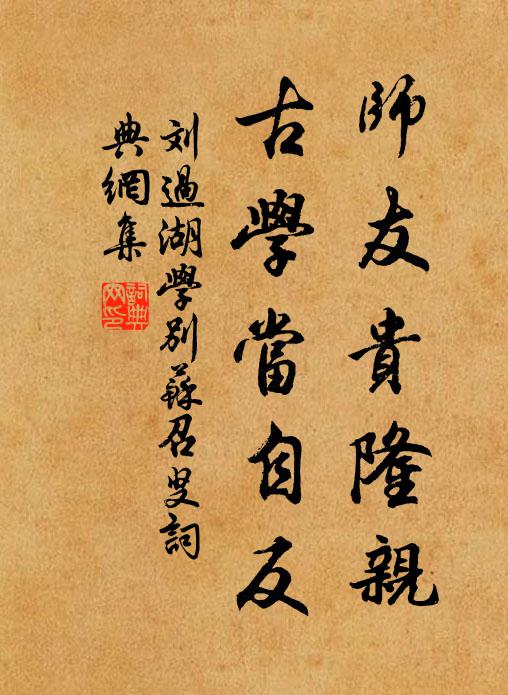 師友貴隆親
古學當自反
刘過湖學别蘇召叟詞
典網集
詞典
网印